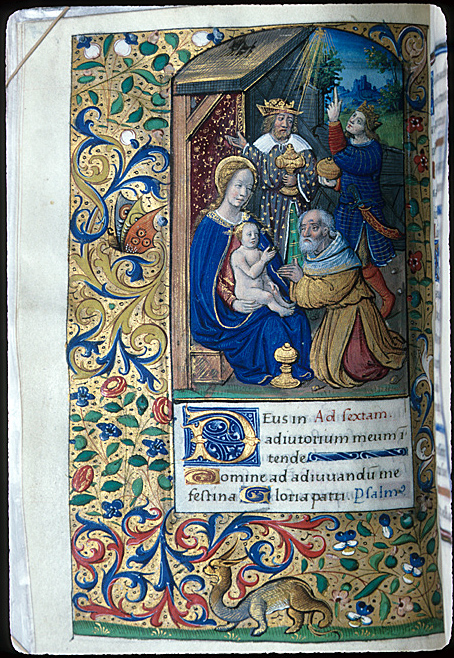 Deus in Ad sextam.
adiutorium meum ī
tende
Domine ad adiuuandū me
festina Gloria patri Psalmꝰ